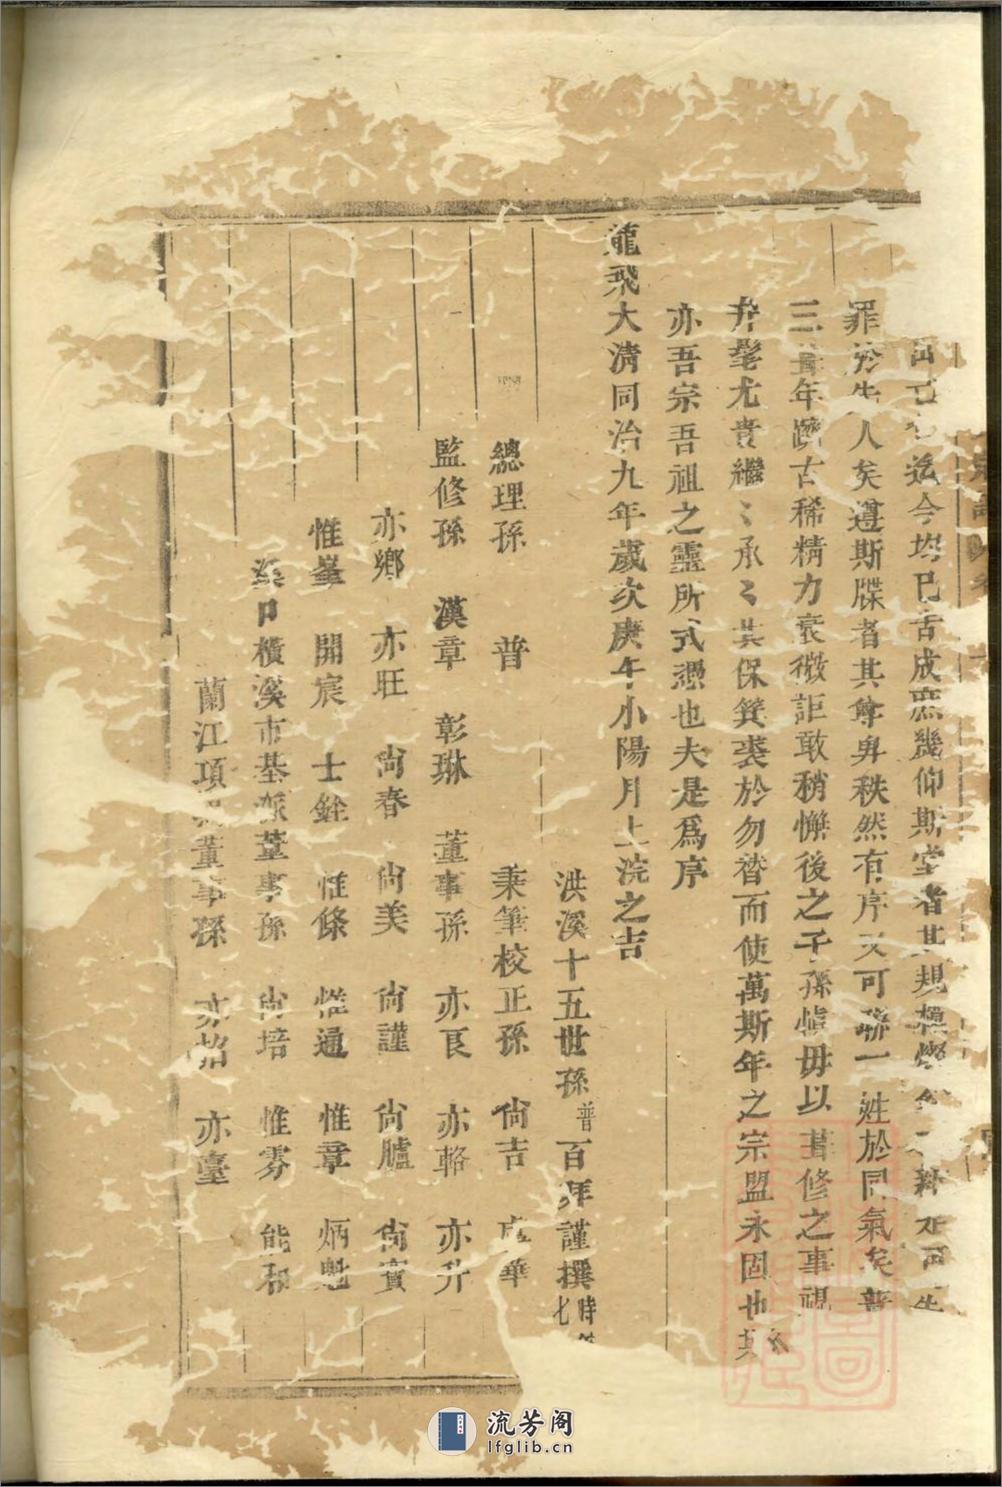 迄今均已告成庶幾仰斯堂者其規模燦然
罪於先人矣遵斯牒者其尊卑秩然有序又可聯一姓於同氣矣普
三年躋古稀精力衰微詎敢稍懈後之子孫慎毋以譜修之事視
弁髦尤貴繼〻承〻其保箕裘於勿替而使萬斯年之宗盟永固也
亦吾宗吾祖之靈所式憑也夫是爲序
龍飛大清同治九年歲次庚午小陽月上浣之吉
洪溪十五世孫普百拜謹撰時
總理孫 普 秉筆校正孫 尙吉 華
監修孫 漢章 彰琳 董事孫 亦良 亦輅 亦升
亦鄉 亦旺 尙春 尙美 尙謹 尙臚 尙賓
惟峯 開宸 士銓 惟條 惟通 惟章 炳魁
溪口橫溪市基派董事孫 尙培 惟雰 能和
蘭江項董事孫 亦紹 亦臺
流芳阁
lfglib.cn